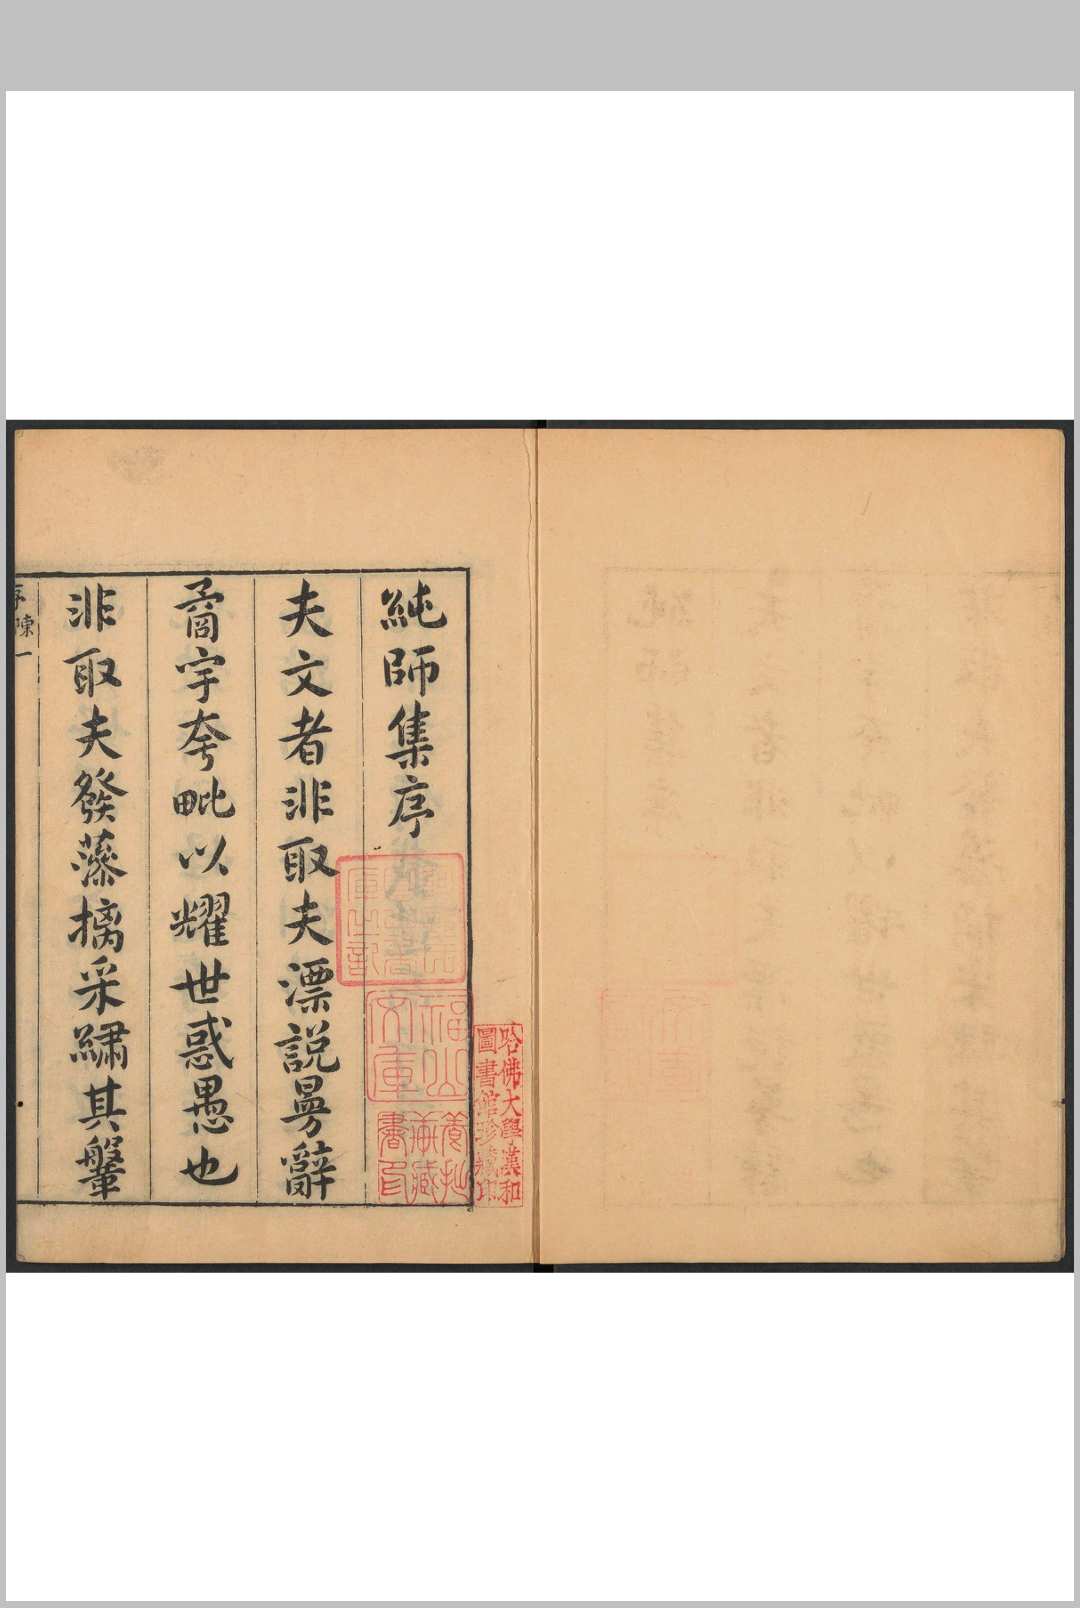 純師集序
夫文者非取夫漂說曼辭
矞宇夸毗以耀世惑愚也
非取夫發藻摛采繡其鞶
序 陳一
福山
文庫
養拙
齋藏
書印
哈佛大學漢和
圖書館珍藏印